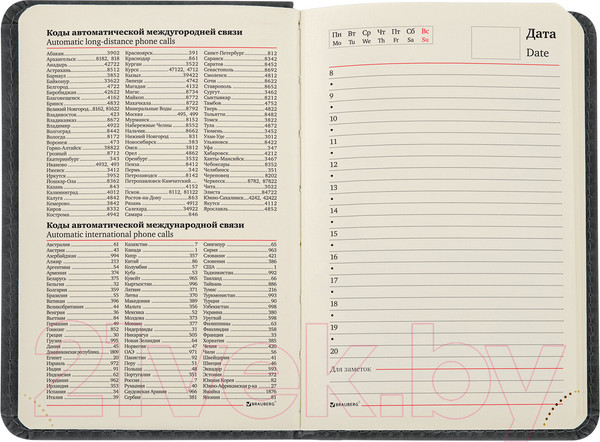 Коды автоматической междугородней связи
Automatic long-distance phone calls
Абакан 3902
Архангельск 8182, 818
Анадырь 42722
Астрахань 8512
Барнаул 3852
Байконур 33622
Белгород 4722
Биробиджан 42622
Благовещенск 4162
Брянск 4832
Великий Новгород 8162, 81622
Владивосток 423
Владикавказ 8672
Владимир 4922
Волгоград 8442
Вологда 8172
Воронеж 473
Горно-Алтайск 38822
Грозный 8712
Екатеринбург 343
Иваново 4932, 493
Ижевск 3412
Иркутск 3952
Йошкар-Ола 8362
Казань 843
Калининград 4012
Калуга 4842
Кемерово 3842
Киров 8332
Кострома 4942
Красноярск 391
Краснодар 861
Курган 3522
Курск 47122, 4712
Кызыл 39422
Липецк 4742
Магадан 4132
Магас 8734
Майкоп 8772
Махачкала 8722
Минеральные Воды 8792
Москва 495, 499
Мурманск 8152
Набережные Челны 8552
Нальчик 8662
Нижний Новгород 831
Новосибирск 383
Омск 3812
Орел 4862
Оренбург 3532
Пенза 8412
Пермь 342
Петрозаводск 8142
Петропавловск-Камчатский
Псков 8112, 81122
Ростов-на-Дону 863
Рязань 4912
Салехард 34922
Самара 846
Санкт-Петербург 812
Саранск 8342
Саратов 8452
Севастополь 8692
Смоленск 4812
Сочи 8622
Ставрополь 8652
Сургут 3462
Сыктывкар 8212
Тамбов 4752
Тверь 4822
Тольятти 8482
Томск 3822
Тула 4872
Тюмень 3452
Улан-Удэ 3012
Ульяновск 8422
Уфа 347
Хабаровск 4212
Ханты-Мансийск 3467
Чебоксары 8352
Челябинск 351
Череповец 8202
Черкесск 8782, 87822
Чита 3022
Элиста 84722
Южно-Сахалинск 4242, 42422
Якутск 4112
Ярославль 4852
Коды автоматической международной связи
Automatic international phone calls
Австралия 61
Австрия 43
Азербайджан 994
Алжир 213
Аргентина 54
Армения 374
Беларусь 375
Бельгия 32
Болгария 359
Бразилия 55
Ватикан 396
Великобритания 44
Венгрия 36
Вьетнам 84
Германия 49
Гонконг 852
Греция 30
Грузия 995
Дания 45
Доминиканская республика 1809
Египет 20
Израиль 972
Индия 91
Индонезия 62
Иордания 962
Ирландия 353
Испания 34
Италия 39
Казахстан 7
Канада 1
Кипр 357
Китай 86
Колумбия 57
Куба 53
Кувейт 965
Кыргызстан 996
Латвия 371
Литва 370
Македония 389
Мальта 356
Мексика 52
Молдова 373
Монако 377
Нидерланды 31
Никарагуа 505
Новая Зеландия 64
Норвегия 47
ОАЭ 971
Пакистан 92
Перу 51
Польша 48
Португалия 351
Россия 7
Румыния 40
Саудовская Аравия 966
Сербия 381
Сингапур 65
Сирия 963
Словакия 421
Словения 386
США 1
Таджикистан 992
Таиланд 66
Тайвань 886
Тунис 216
Туркменистан 993
Турция 90
Узбекистан 998
Украина 380
Уругвай 598
Филиппины 63
Финляндия 358
Франция 33
Хорватия 385
Чехия 420
Чили 56
Швейцария 41
Швеция 46
Эквадор 593
Эстония 372
Южная Корея 82
Южно-Африканская р-ка 27
Ямайка 1876
Япония 81
BRAUBERG
Пн Вт Ср Чт Пт Сб Вс
Mo Tu We Th Fr Sa Su
Дата
Date
8
9
10
11
12
13
14
15
16
17
18
19
20
Для заметок
BRAUBERG
21vek.by